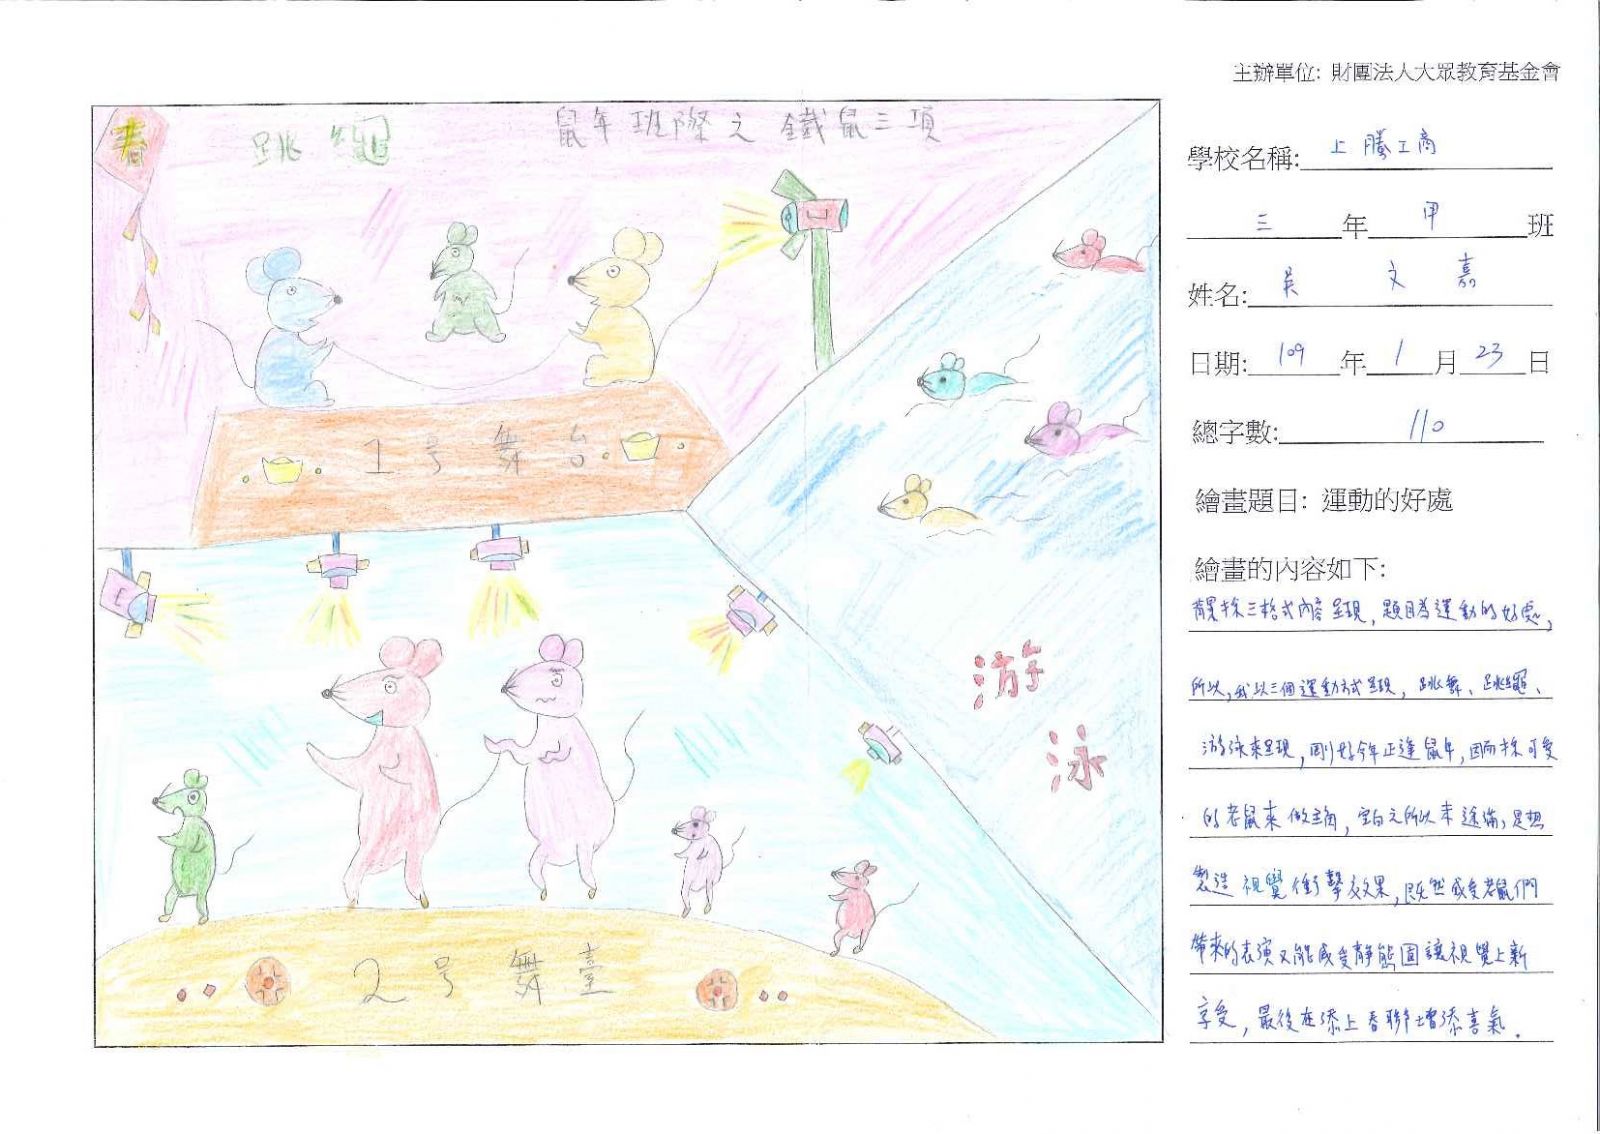 主辦單位: 財團法人大眾教育基金會
春
跳繩
鼠年班際之 鐵鼠三項
1号舞台
游泳
2号舞臺
學校名稱: 上騰工商
三年甲班
姓名: 吳文嘉
日期: 109年1月23日
總字數: 110
繪畫題目: 運動的好處
繪畫的內容如下:
背景採三格式內容呈現,題目為運動的好處,
所以,我以三個運動方式呈現,跳舞、跳繩、
游泳來呈現,剛好今年正逢鼠年,因而採可愛
的老鼠來做主角,空白之所以未塗滿,是想
製造視覺衝擊效果,既然感受老鼠們
帶來的表演又能感受靜態圖讓視覺上新
享受,最後在添上春聯增添喜氣.